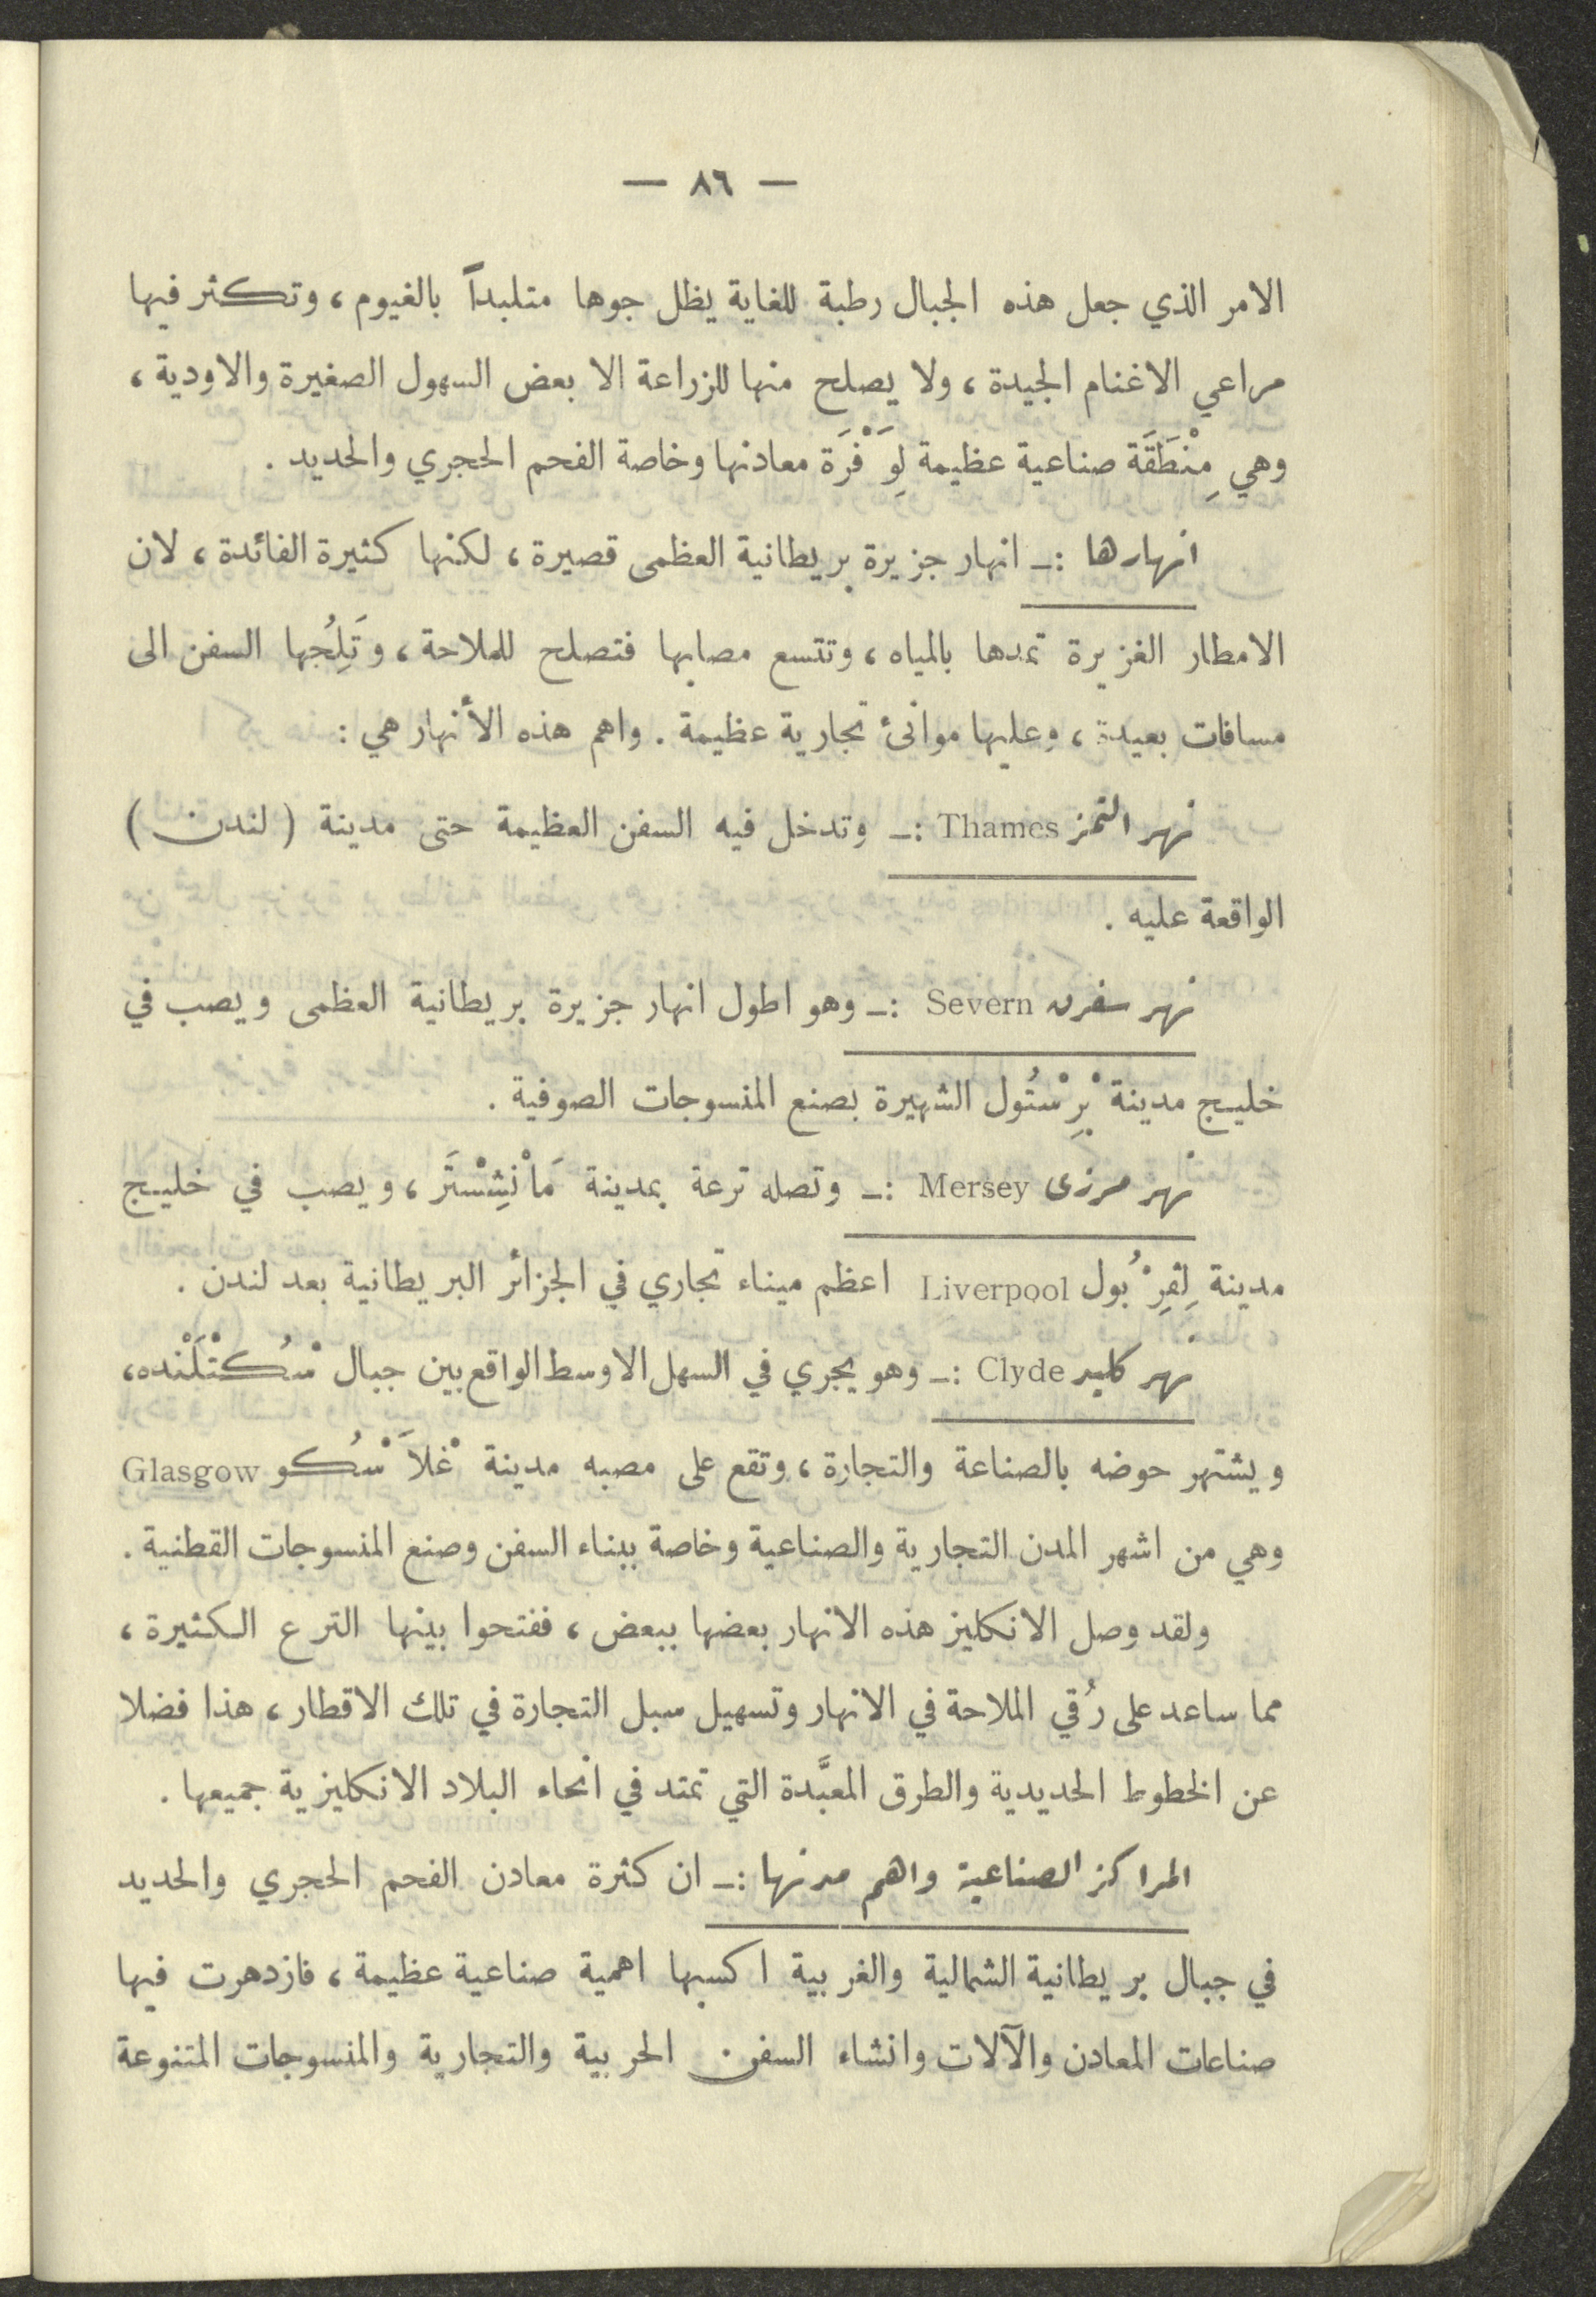 — ٨٦ —
الامر الذي جعل هذه الجبال رطبة للغاية يظل جوها متلبداً بالغيوم ، وتكثر فيها
مراعي الاغنام الجيدة ، ولا يصلح منها للزراعة الا بعض السهول الصغيرة والاودية ،
وهي مِنْطَقَة صناعية عظيمة لِوَفْرَة معادنها وخاصة الفحم الحجري والحديد .
انهارها :ـ انهار جزيرة بريطانية العظمى قصيرة ، لكنها كثيرة الفائدة ، لان
الامطار الغزيرة تمدها بالمياه ، وتتسع مصابها فتصلح للملاحة ، وتَلِجُها السفن الى
مسافات بعيدة ، وعليها موانئ تجارية عظيمة . واهم هذه الأنهار هي :
نهر التمز Thames :ـ وتدخل فيه السفن العظيمة حتى مدينة ( لندن )
الواقعة عليه .
نهر سفرن Severn :ـ وهو اطول انهار جزيرة بريطانية العظمى ويصب في
خليج مدينة بْرِسْتُول الشهيرة بصنع المنسوجات الصوفية .
نهر مرزى Mersey :ـ وتصله ترعة بمدينة مَاْنْشِسْتَر ، ويصب في خليج
مدينة لِفِرْبُول Liverpool اعظم ميناء تجاري في الجزائر البريطانية بعد لندن .
نهر كليد Clyde :ـ وهو يجري في السهل الاوسط الواقع بين جبال سْكُتْلَنْده ،
ويشتهر حوضه بالصناعة والتجارة ، وتقع على مصبه مدينة غْلَاسْكُو Glasgow
وهي من اشهر المدن التجارية والصناعية وخاصة ببناء السفن وصنع المنسوجات القطنية .
ولقد وصل الانكليز هذه الانهار بعضها ببعض ، ففتحوا بينها الترع الكثيرة ،
مما ساعد على رُقي الملاحة في الانهار وتسهيل سبل التجارة في تلك الاقطار ، هذا فضلا
عن الخطوط الحديدية والطرق المعبَّدة التي تمتد في انحاء البلاد الانكليزية جميعها .
المراكز الصناعية واهم مدنها :ـ ان كثرة معادن الفحم الحجري والحديد
في جبال بريطانية الشمالية والغربية اكسبها اهمية صناعية عظيمة ، فازدهرت فيها
صناعات المعادن والآلات وانشاء السفن الحربية والتجارية والمنسوجات المتنوعة